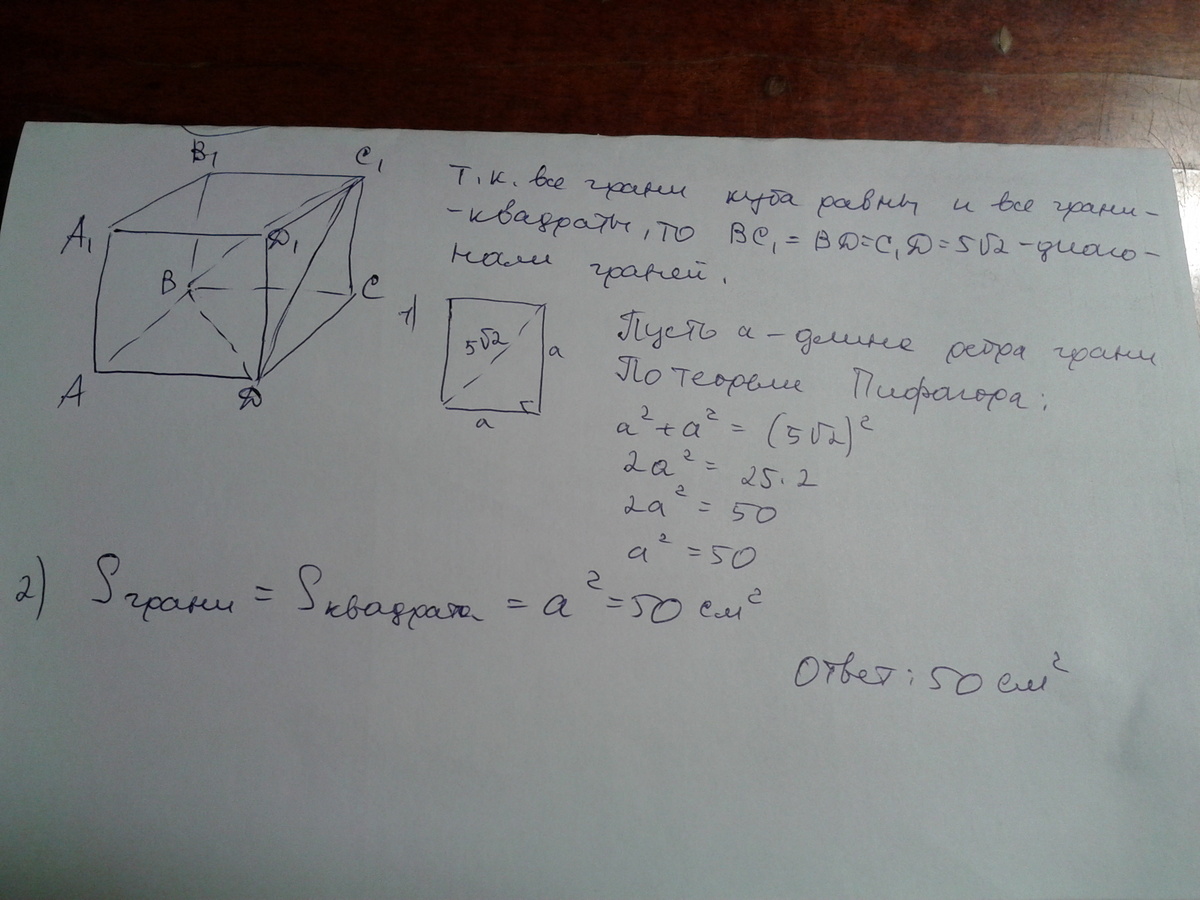 B₁
C₁
A₁
D₁
B
C
A
D
Т.к. все грани куба равны и все грани-
-квадраты, то BC₁ = BD = C₁D = 5√2 - диаго-
нали граней.
1)
5√2
a
a
Пусть a - длина ребра грани
По теореме Пифагора:
a² + a² = (5√2)²
2a² = 25·2
2a² = 50
a² = 50
2) Sграни = Sквадрата = a² = 50 см²
Ответ: 50 см²